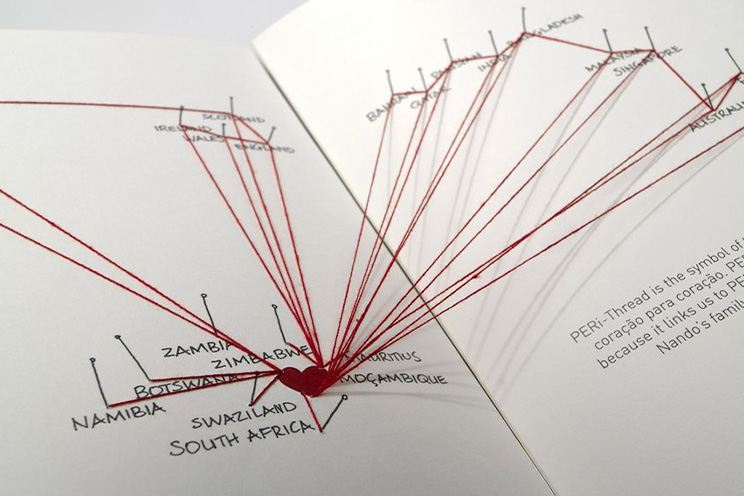 SCOTLAND
IRELAND
WALES
ENGLAND
ZAMBIA
ZIMBABWE
BOTSWANA
NAMIBIA
SWAZILAND
SOUTH AFRICA
MAURITIUS
MOÇAMBIQUE
BAHRAIN
QATAR
PAKISTAN
INDIA
BANGLADESH
MALAYSIA
SINGAPORE
AUSTRALIA
PERi-Thread is the symbol of
coração para coração. PE
because it links us to PE
Nando's famil